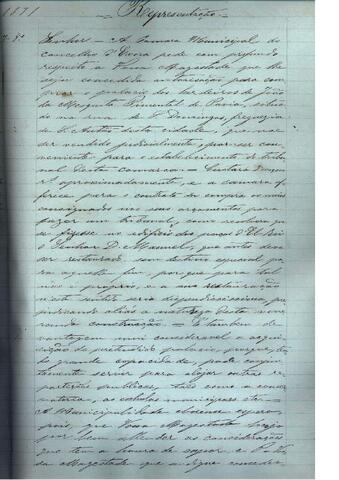 1871
Representação
Senhor = A Camara Municipal do
concelho d'Evora pede com profundo
respeito a Vossa Magestade que lhe
seja concedida autorisação para com-
prar o palacio dos herdeiros de João
da Mesquita Pimentel de Paiva, situa-
do na rua de S. Domingos, freguezia
de S. Antão desta cidade, que vae
ser vendido judicialmente, por ser con-
veniente para o estabelecimento do tribu-
nal desta comarca =
aproximadamente, e a camara of-
ferece para o contrato da compra os meios
consignados nos seus orçamentos para
fazer um tribunal, como resolveu que
se fizesse no edificio dos paços d'El-Rei
o Senhor D. Manuel, que antes deve
ser restaurado sem destino especial para
aquelle fim, porque para tal
não é proprio, e a sua restauração
n'este sentido seria dispendiosissima, pre-
judicando aliás a natureza desta
construcção = É tambem de
vantagem mui consideravel a acqui-
sição do pretendido palacio, porque,
de grande capacidade, pode compe-
tentemente servir para alojar outras re-
partições publicas, taes como a conser-
vatoria, as escholas municipaes etc =
A Municipalidade eborense espera
pois, que Vossa Magestade haja
por bem attender as considerações
que tem a honra de expor e Pede
da Magestade que se digne conceder